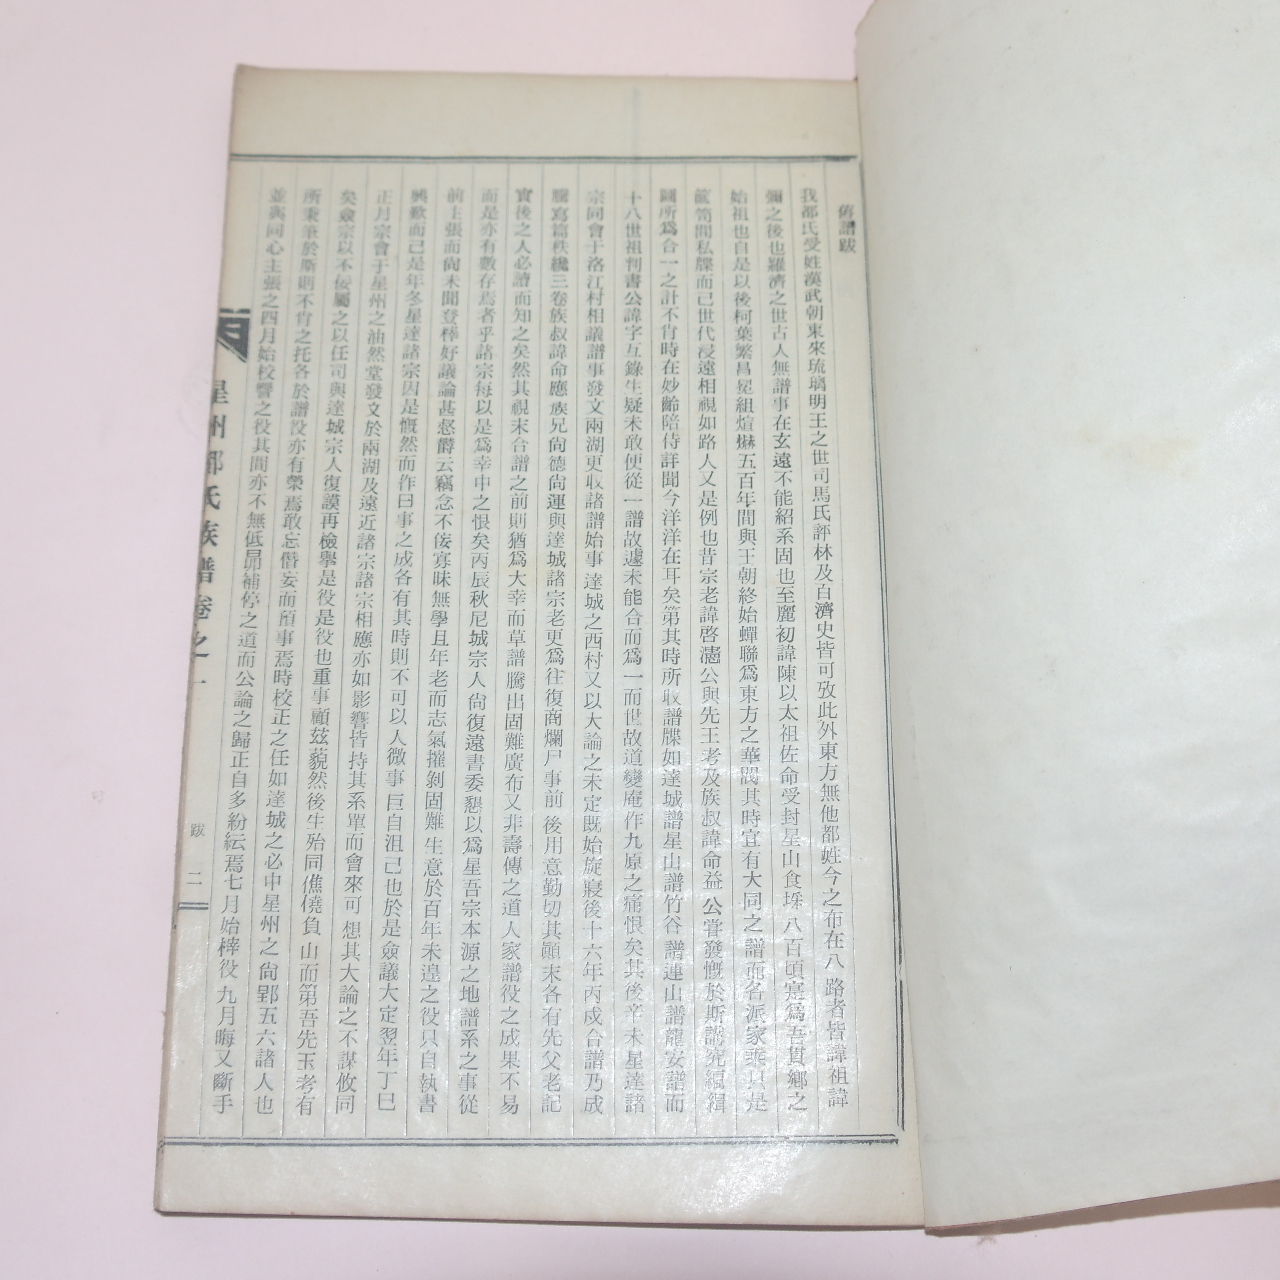 舊譜跋
我都氏受姓漢武朝東來琉璃明王之世司馬氏評林及百濟史皆可攷此外東方無他都姓今之布在八路者皆諱祖諱
彌之後也羅濟之世古人無譜事在玄遠不能紹系固也至麗初諱陳以太祖佐命受封星山食埰八百頃寔爲吾貫鄉之
始祖也自是以後柯葉繁昌冕組煊爀五百年間與王朝終始蟬聯爲東方之華閥其時宜有大同之譜而各派家乘只是
篋笥間私牒而己世代浸遠相視如路人又是例也昔宗老諱啓瀗公與先王考及族叔諱命益公嘗發慨於斯講究編緝
圖所爲合一之計不肯時在妙齡陪侍詳聞今洋洋在耳矣第其時所收譜牒如達城譜星山譜竹谷譜連山譜龍安譜而
十八世祖判書公諱字互錄生疑未敢便從一譜故遽未能合而爲一而世故道變庵作九原之痛恨矣其後辛未星達諸
宗同會于洛江村相議譜事發文兩湖更收諸譜始事達城之西村又以大論之未定既始旋寢後十六年丙戌合譜乃成
謄寫篇秩纔三卷族叔諱命應族兄尙德尙運與達城諸宗老更爲往復商爛尸事前後用意勤切其顚末各有先父老記
實後之人必讀而知之矣然其視末合譜之前則猶爲大幸而草譜騰出固難廣布又非壽傳之道人家譜役之成果不易
而是亦有數存焉者乎諸宗每以是爲幸中之恨矣丙辰秋尼城宗人尙復遠書委懇以爲星吾宗本源之地譜系之事從
前主張而尙未聞登梓好議論甚惄欝云竊念不侫寡昧無學且年老而志氣摧剝固難生意於百年未遑之役只自執書
興歎而己是年冬星達諸宗因是慨然而作曰事之成各有其時則不可以人微事巨自沮己也於是僉議大定翌年丁巳
正月宗會于星州之油然堂發文於兩湖及遠近諸宗諸宗相應亦如影響皆持其系單而會來可想其大論之不謀攸同
矣僉宗以不侫屬之以任司與達城宗人復謨再檢擧是役是役也重事顧玆藐然後生殆同僬僥負山而第吾先王考有
所秉筆於斯則不肯之托各於譜役亦有榮焉敢忘僭妄而蒞事焉時校正之任如達城之必中星州之尙郢五六諸人也
並與同心主張之四月始校讐之役其間亦不無低昻補停之道而公論之歸正自多紛紜焉七月始梓役九月晦又斷手
星州都氏族譜卷之一
跋
二